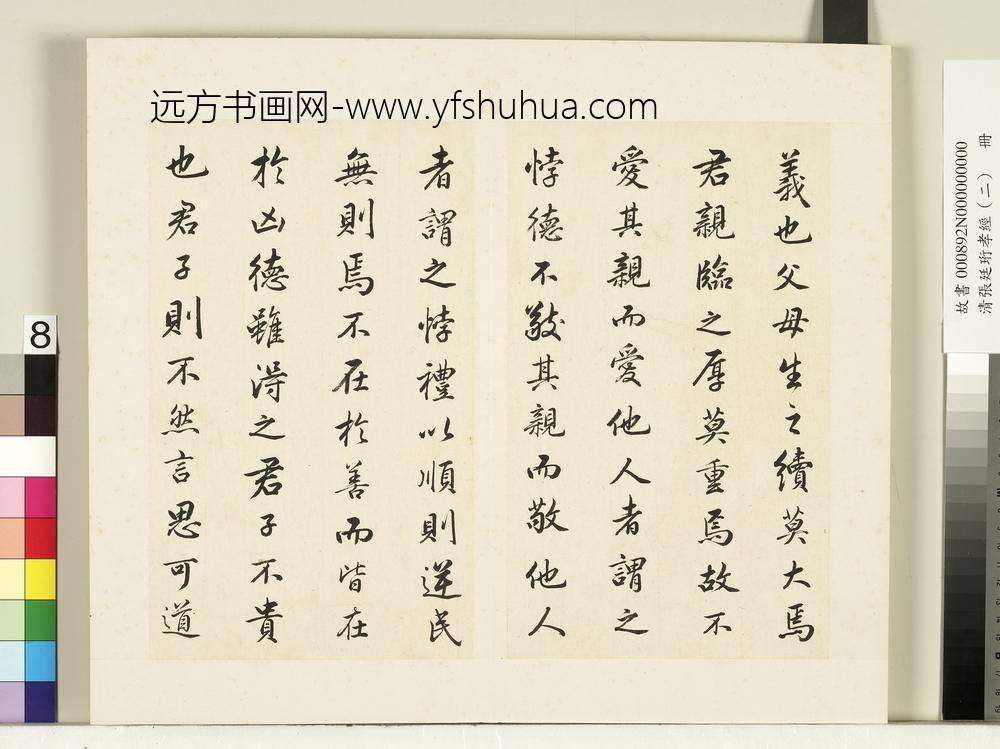 远方书画网-www.yfshuhua.com
義也父母生之續莫大焉
君親臨之厚莫重焉故不
愛其親而愛他人者謂之
悖德不敬其親而敬他人
者謂之悖禮以順則逆民
無則焉不在於善而皆在
於凶德雖淂之君子不貴
也君子則不然言思可道
故書000892N000000000
清張廷珩孝經(二) 冊
8